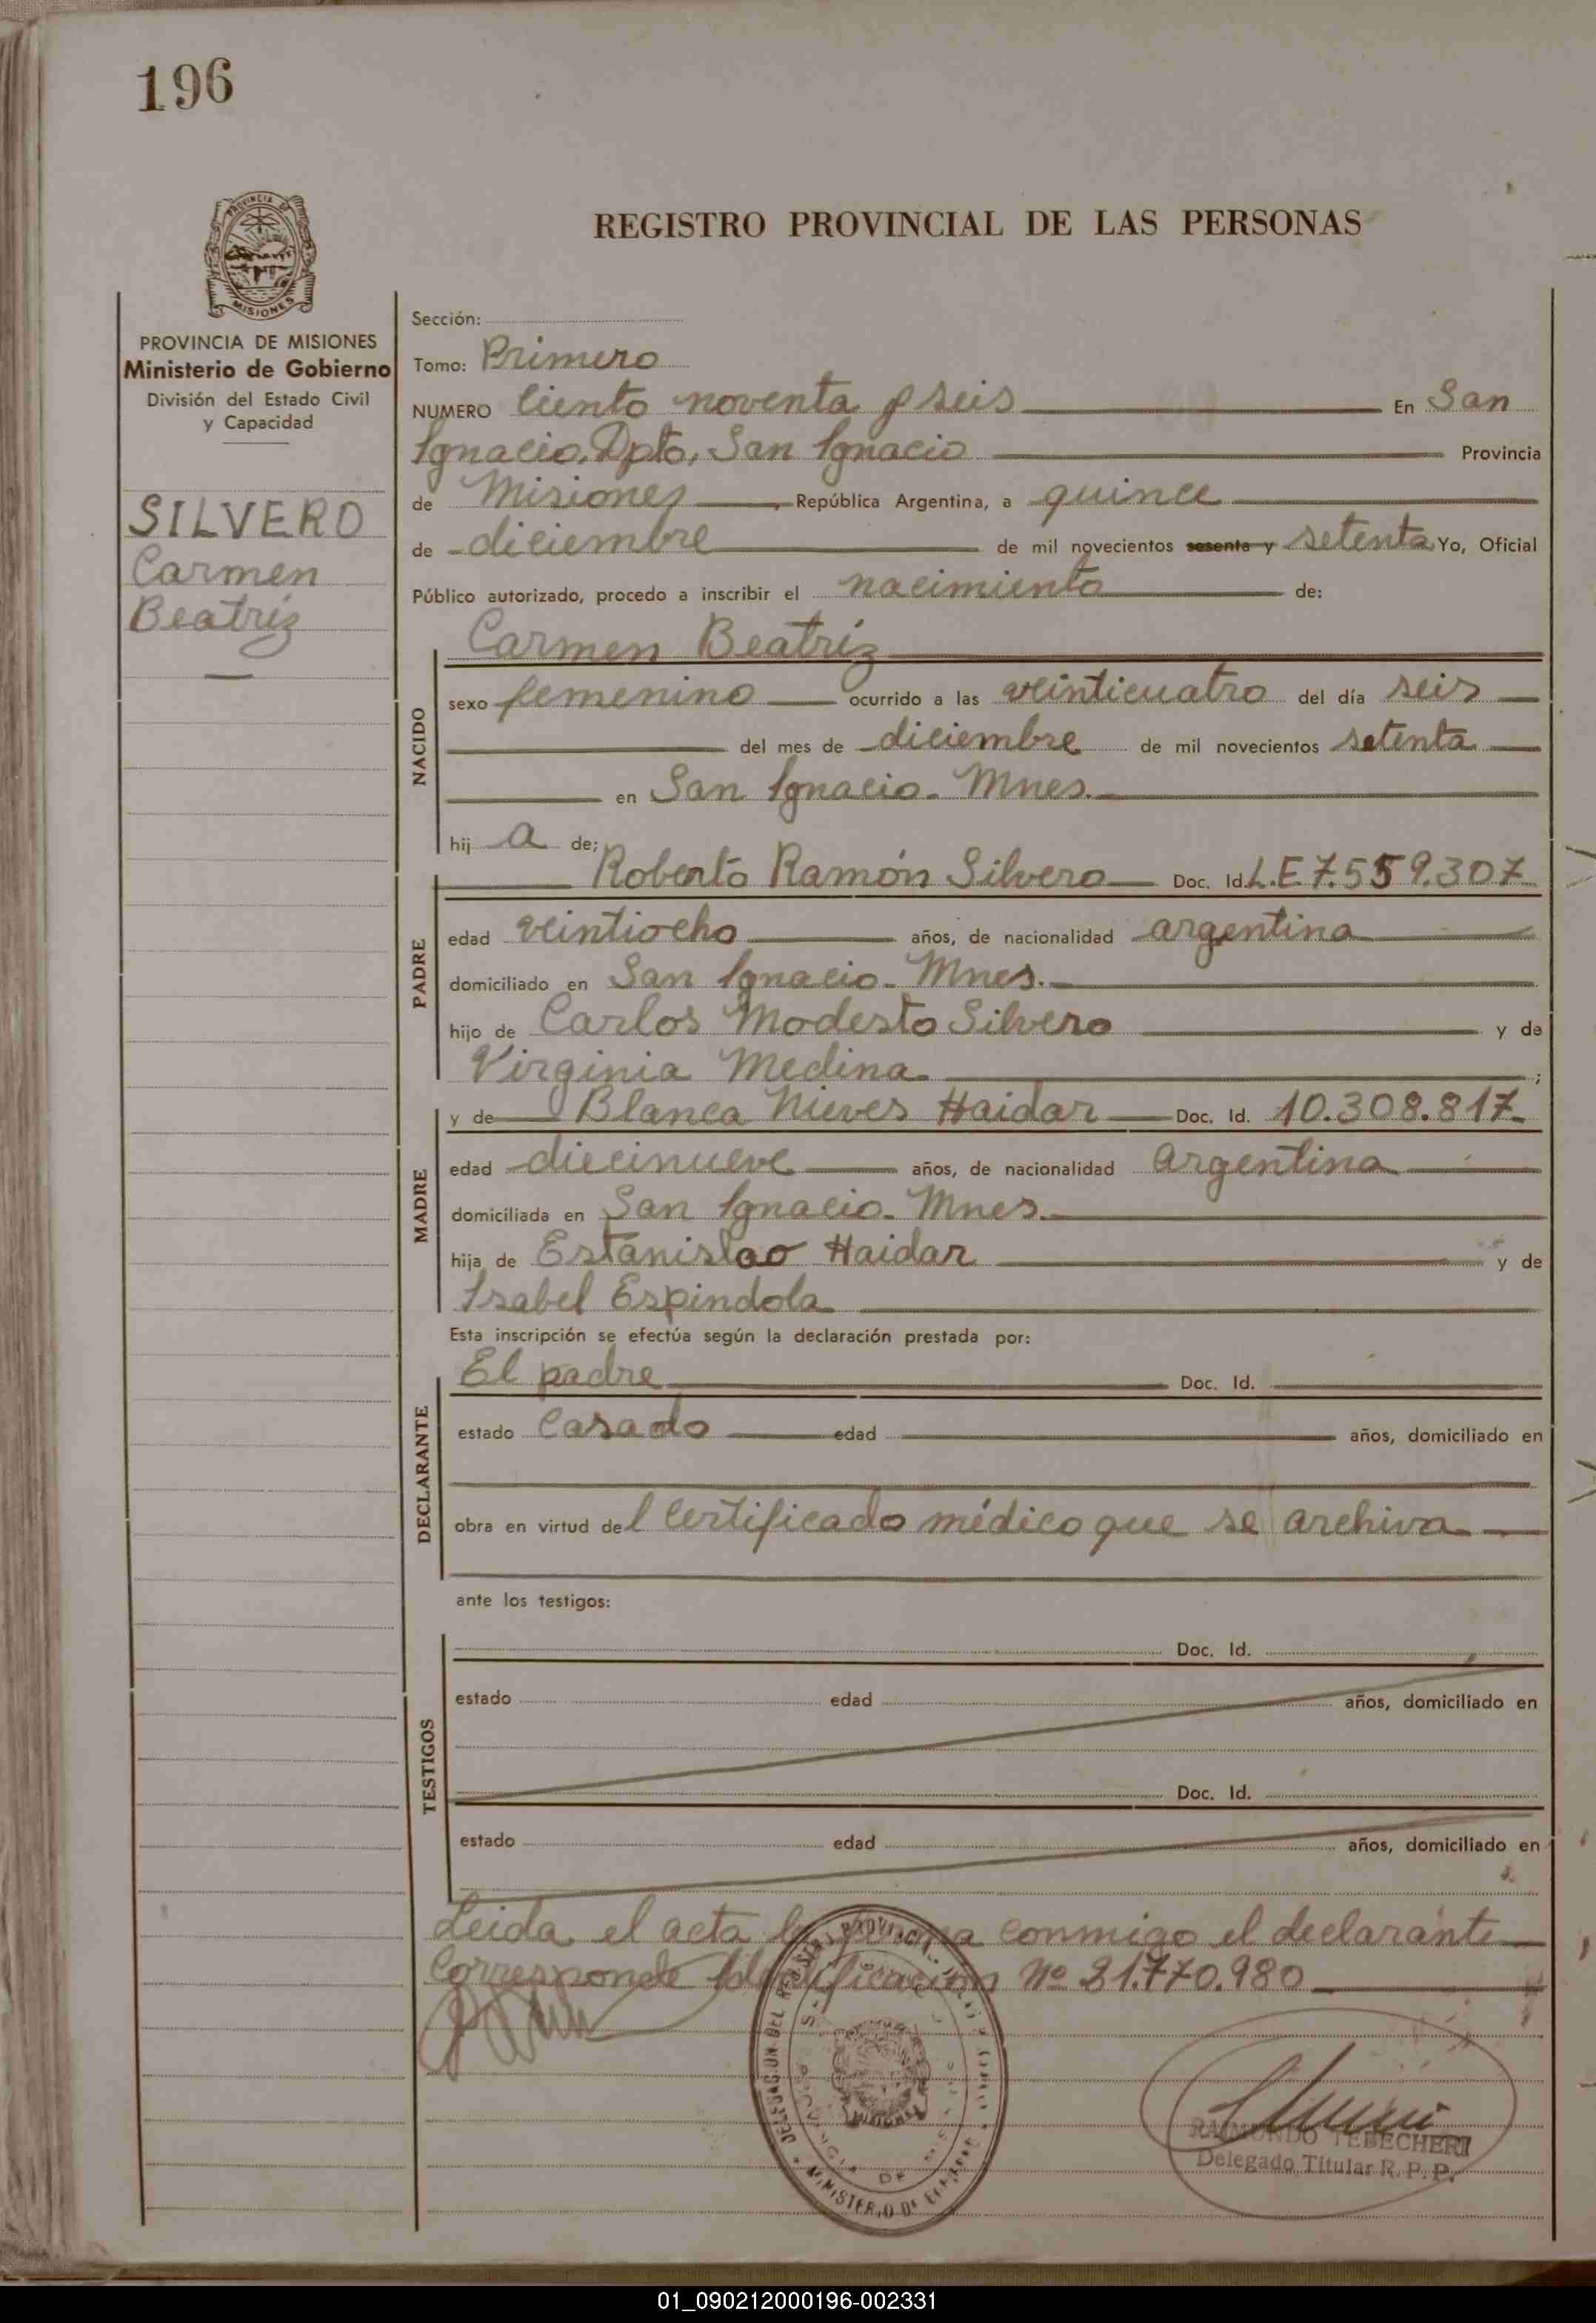 196
PROVINCIA DE
MISIONES
REGISTRO PROVINCIAL DE LAS PERSONAS
PROVINCIA DE MISIONES
Ministerio de Gobierno
División del Estado Civil
y Capacidad
SILVERO
Carmen
Beatríz
Sección:
Tomo: Primero
NUMERO Ciento noventa y seis En San
Ignacio, Dpto, San Ignacio Provincia
de Misiones, República Argentina, a quince
de diciembre de mil novecientos sesenta y setenta Yo, Oficial
Público autorizado, procedo a inscribir el nacimiento de:
Carmen Beatríz
NACIDO
sexo femenino ocurrido a las veinticuatro del día seis
del mes de diciembre de mil novecientos setenta
en San Ignacio - Mnes.
hij a de;
Roberto Ramón Silvero Doc. Id. L.E 7.559.307
PADRE
edad veintiocho años, de nacionalidad argentina
domiciliado en San Ignacio - Mnes.
hijo de Carlos Modesto Silvero y de
Virginia Medina ;
y de Blanca Nieves Haidar Doc. Id. 10.308.817
MADRE
edad diecinueve años, de nacionalidad argentina
domiciliada en San Ignacio - Mnes.
hija de Estanislao Haidar y de
Isabel Espindola
Esta inscripción se efectúa según la declaración prestada por:
El padre Doc. Id.
DECLARANTE
estado Casado edad años, domiciliado en
obra en virtud del Certificado médico que se archiva
ante los testigos:
Doc. Id.
TESTIGOS
estado edad años, domiciliado en
Doc. Id.
estado edad años, domiciliado en
Leida el acta la firma conmigo el declarante
Corresponde Identificación Nº 21.770.980
RAIMUNDO TEBECHERI
Delegado Titular R. P. P.
01_090212000196-002331